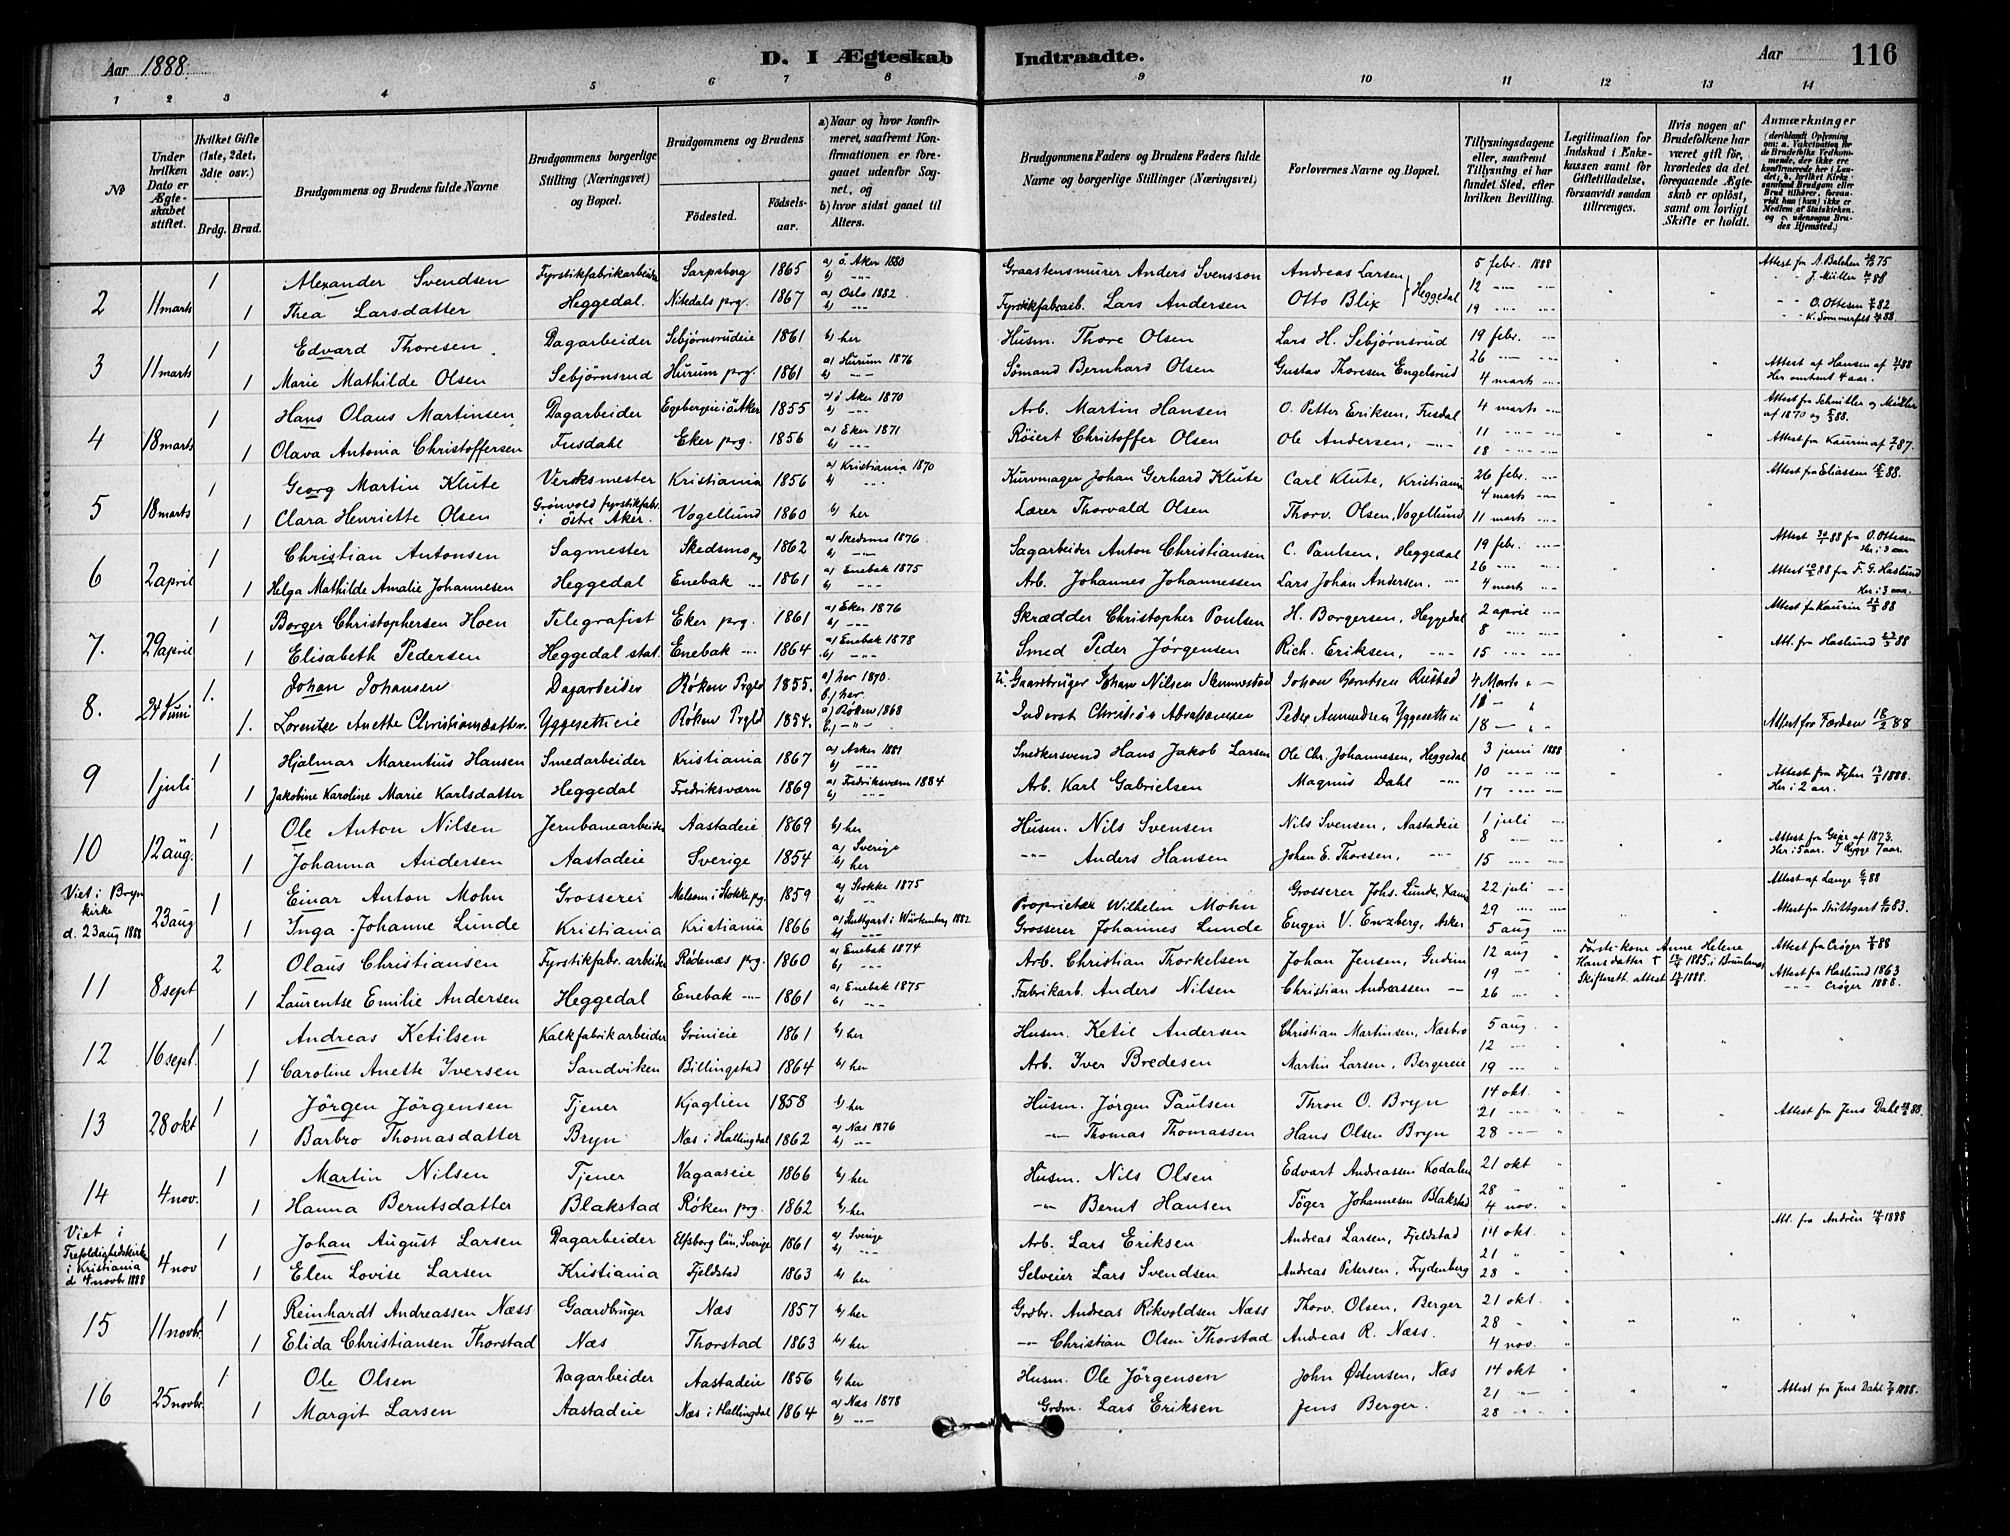 Aar 1888. D. I Ægteskab Indtraadte. Aar 116
1 2 3 4 5 6 7 8 9 10 11 12 13 14
No
Under hvilken Dato er Ægteskabet stiftet.
Hvilket Gifte (1ste, 2det, 3die osv.)
Brdg. Brud.
Brudgommens og Brudens fulde Navne
Brudgommens borgerlige Stilling (Næringsvei) og Bopæl.
Brudgommens og Brudens
Fødested. Fødselsaar.
a) Naar og hvor konfirmeret, saafremt Konfirmationen er foregaaet udenfor Sognet, og
b) hvor sidst gaaet til Alters.
Brudgommens Faders og Brudens Faders fulde Navne og borgerlige Stillinger (Næringsvei)
Forlovernes Navne og Bopæl.
Tillysningsdagene eller, saafremt Tillysning ei har fundet Sted, efter hvilken Bevilling.
Legitimation for Indskud i Enkekassen samt for Giftetilladelse, forsaavidt saadan tiltrænges.
Hvis nogen af Brudefolkene har været gift før, hvorledes da det foregaaende Ægteskab er opløst, samt om lovligt Skifte er holdt.
Anmærkninger
2 11 marts 1 Alexander Svendsen Fyrstikfabrikarbeider Sarpsborg 1865 a) ö Aker 1880 b) Graastensmurer Anders Svensson Andreas Larsen 5 febr. 1888 Attest fr A. Balchen 75
J. Müller 88
1 Thea Larsdatter Heggedal. Nitedals prg. 1867 a) Oslo 1882 b) Fyrstikfabrarb. Lars Andersen Otto Blix } Heggedal 12 19 O. Ottesen 82
K. Sommerfelt 88.
3 11 marts 1 Edvard Thoresen Dagarbeider Sebjørnsrudeie 1861 b) her Husm. Thore Olsen Lars H. Sebjørnsrud 19 febr.
1 Marie Mathilde Olsen Sebjørnsrud Hurum prg. 1861 a) Hurum 1876 b) Sømand Bernhard Olsen Gustav Thoresen Engelsrud 26 4 marts Attest af Hansen af 88
Her omtrent 4 aar.
4 18 marts 1 Hans Olaus Martinsen Dagarbeider Egebergeie i ö Aker 1855 a) ö Aker 1870 b) Arb. Martin Hansen O. Petter Eriksen, Fusdal 4 marts Attest fra Schnitler og Müller
af 1870 og 88.
1 Olava Antonia Christoffersen Fusdahl Eker prg. 1856 a) Eker 1871 b) Røiert Christoffer Olsen Ole Andersen, 11 18 Attest fra Kaurin af 87.
5 18 marts 1 Georg Martin Klute Verksmester Kristiania 1856 a) Kristiania 1870 b) Kurvmager Johan Gerhard Klute Carl Klute, Kristiania 26 febr. 4 marts Attest fra Eliassen 88.
1 Clara Henriette Olsen Grönvold fyrstikfabr. i östre Aker. Vogellund 1860 b) her Lærer Thorvald Olsen Thorv. Olsen, Vogellund 11 marts
6 2 april 1 Christian Antonsen Sagmester Skedsmo prg 1862 a) Skedsmo 1876 b) Sagarbeider Anton Christiansen C. Paulsen, Heggedal 19 febr. Attest 88 fra O. Ottesen
Her i 3 aar
1 Helga Mathilde Amalie Johannesen Heggedal Enebak 1861 a) Enebak 1875 b) Arb. Johannes Johannessen Lars Johan Andersen, 26 4 marts Attest 88 fra F. G. Haslund
Her i 3 aar.
7. 29 april 1 Borger Christophersen Hoen Telegrafist Eker prg. 1861 a) Eker 1876 b) Skrædder Christopher Poulsen H. Borgersen, Heggedal 2 april Attest fr Kaurin 88
1 Elisabeth Pedersen Heggedal stat. Enebak 1864 a) Enebak 1878 b) Smed Peder Jørgensen Rich. Eriksen, 8 15 Att. fr. Haslund 88
8. 24 Juni 1. Johan Johansen Dagarbeider Røken Prgld 1855. a) her 1870. b) her Gaardbruger Johan Nilsen Hennumstad Johan Berntsen Rustad 4 Marts
1. Lorentse Anette Christiansdatter. Yggesetheie Røken Prgld 1854. a) Røken 1868 b) Inderst Christian Abrahamsen Peder Aamundsen Yggesethei 11 18 Attest fra Færden 18/2 88
9 1 juli 1 Hjalmar Marentius Hansen Smedarbeider Kristiania 1867 a) Asker 1881 b) Snedkersvend Hans Jakob Larsen Ole Chr. Johannesen, Heggedal 3 juni 1888
1 Jakobine Karoline Marie Karlsdatter Heggedal Fredriksværn 1869 a) Fredriksværn 1884 b) Arb. Karl Gabrielsen Magnus Dahl 10 17 Attest fra 1888.
Her i 2 aar.
10 12 aug. 1 Ole Anton Nilsen Jernbanearbeider Aastadeie 1869 b) her Husm. Nils Svensen Nils Svensen, Aastadeie 1 juli
1 Johanna Andersen Aastadeie Sverige 1854 a) Sverige b) her Anders Hansen Johan E. Thoresen, 8 15 Attest fra af 1873.
Her i 5 aar. I Rygge 7 aar.
Viet i Bryn kirke d. 23 aug 1888 23 aug 1 Einar Anton Mohn Grosserer Melsom i Stokke prg. 1859 a) Stokke 1875 b) Proprietær Wilhelm Mohn Grosserer Johs. Lunde, Xania 22 juli Attest af Lange 88
1 Inga Johanne Lunde Kristiania Kristiania 1866 a) Stuttgart i Würtemberg 1882 b) Grosserer Johannes Lunde Eugen V. Enzberg, Asker 29 5 aug Attest fra Stuttgart 83.
11 8 sept 2 Olaus Christiansen Fyrstikfabr. arbeider Rødenæs prg. 1860 a) Enebak 1874 b) Arb. Christian Thorkelsen Johan Jensen, Gudim 12 aug Første kone Anne Helene
Hansdatter † 1885 i Brunlanes
Skifterett attest 1888. Attest fra Crøger 88
1 Laurentse Emilie Andersen Heggedal Enebak 1861 a) Enebak 1875 b) Fabrikarb. Anders Nilsen Christian Andreassen 19 26 Attest fra Haslund 1863
Crøger 1888.
12 16 sept. 1 Andreas Ketilsen Kalkfabrikarbeider Grinieie 1861 b) her Husm. Ketil Andersen Christian Martinsen, Næsbro 5 aug
1 Caroline Anette Iversen Sandviken Billingstad 1864 b) her Arb. Iver Bredesen Martin Larsen, Bergereie 12 19
13 28 okt 1 Jörgen Jörgensen Tjener Kjaglien 1858 b) her Husm. Jörgen Paulsen Thron O. Bryn 14 okt.
1 Barbro Thomasdatter Bryn Næs i Hallingdal 1862 a) Næs 1876 b) Thomas Thomassen Hans Olsen Bryn 21 28 Attest fra Jens Dahl 88.
14 4 nov. 1 Martin Nilsen Tjener Vagaaseie 1866 b) her Husm. Nils Olsen Edvart Andreassen Kodalen 21 okt
1 Hanna Berntsdatter Blakstad Röken prg. 1862 b) her Bernt Hansen Töger Johannesen Blakstad 28 4 nov.
Viet i Trefoldighedskirke i Kristiania d. 4 novbr 1888 4 nov 1 Johan August Larsen Dagarbeider Elfsborg län, Sverige 1861 a) Sverige b) Arb. Lars Eriksen Andreas Larsen, Fjeldstad 14 okt Att. fra Andrén 1888
1 Elen Lovise Larsen Kristiania Fjeldstad 1863 b) her Selveier Lars Svendsen Andreas Petersen, Frydenberg 21 28
15 11 novbr. 1 Reinhardt Andreassen Næss Gaardbruger Næs 1857 b) her Grdbr. Andreas Rikvoldsen Næss Thorv. Olsen, Berger 21 okt.
1 Elida Christiansen Thorstad Næs Thorstad 1863 b) her Christian Olsen Thorstad Andreas R. Næss. 28 4 nov.
16 25 novbr. 1 Ole Olsen Dagarbeider Aastadeie 1856 b) her Husm. Ole Jörgensen John Østensen, Næs 14 okt
1 Margit Larsen Aastadeie Næs i Hallingdal 1864 a) Næs 1878 b) Grdm. Lars Eriksen Jens Berger. 21 28 Attest fra Jens Dahl 1888.